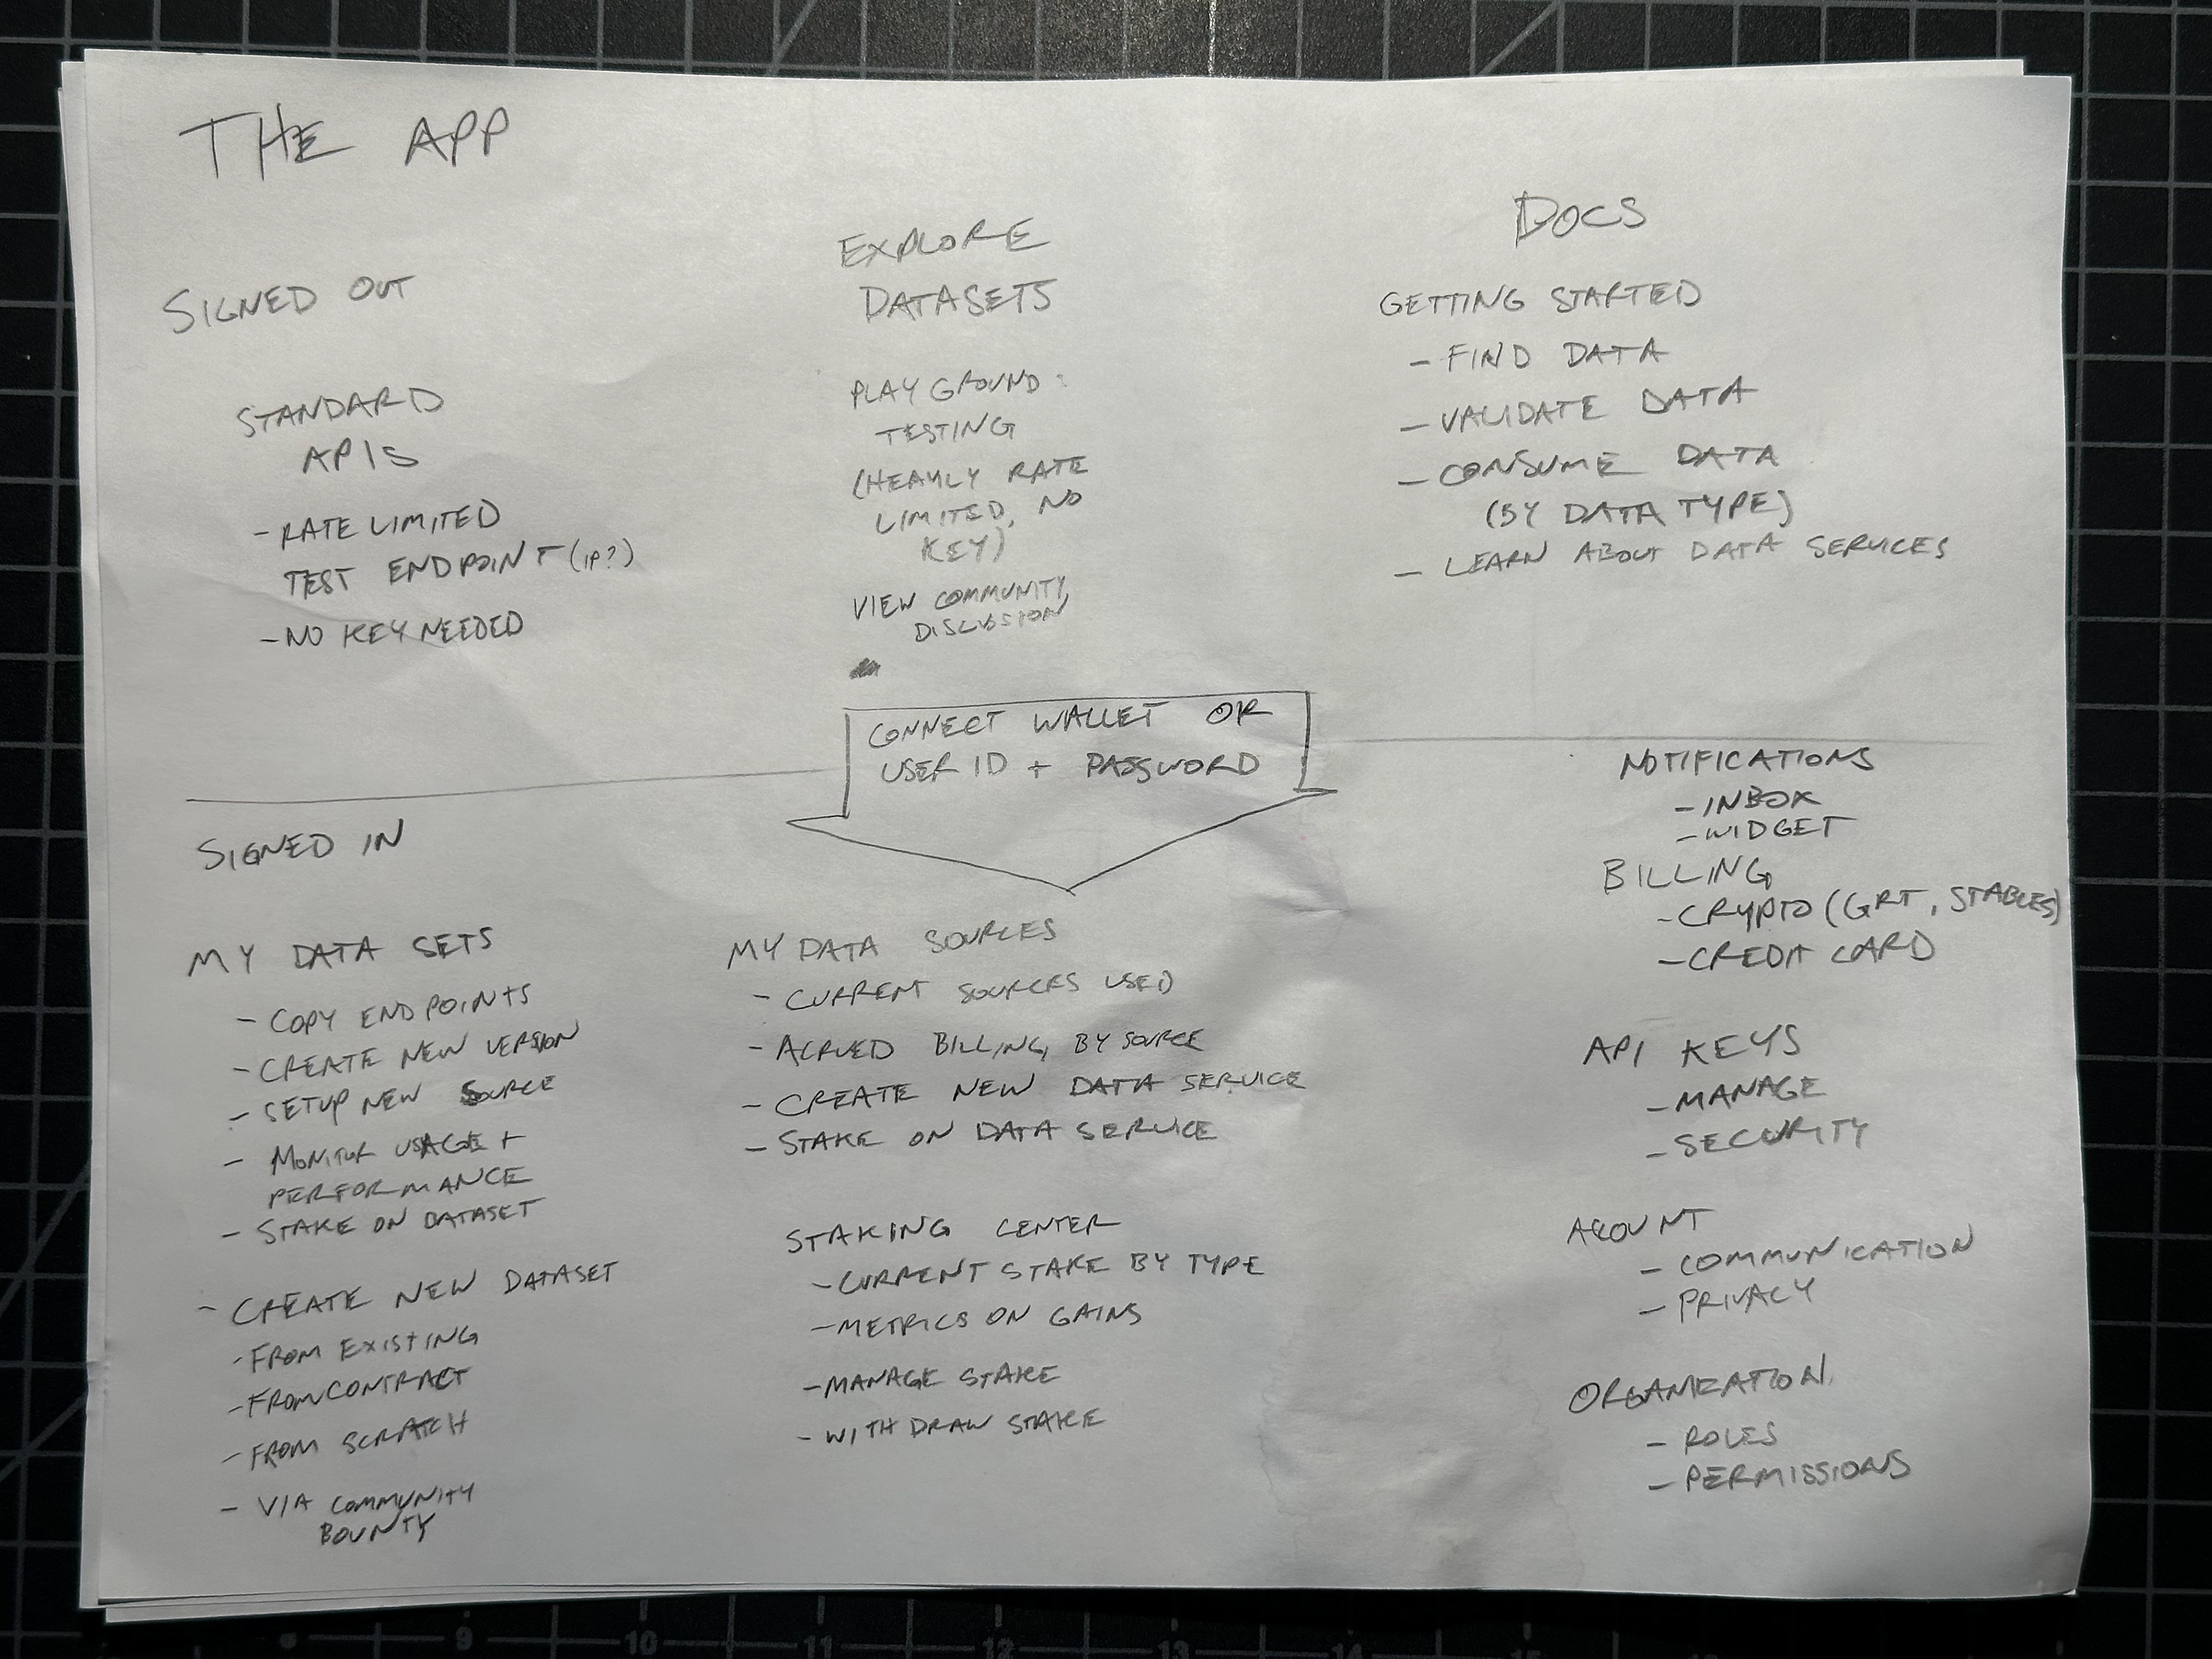 THE APP
SIGNED OUT
STANDARD
APIS
- RATE LIMITED
TEST ENDPOINT (IP?)
- NO KEY NEEDED
EXPLORE
DATASETS
PLAYGROUND
TESTING
(HEAVILY RATE
LIMITED, NO
KEY)
VIEW COMMUNITY
DISCUSSION
DOCS
GETTING STARTED
- FIND DATA
- VALIDATE DATA
- CONSUME DATA
(BY DATA TYPE)
- LEARN ABOUT DATA SERVICES
CONNECT WALLET OR
USER ID + PASSWORD
SIGNED IN
MY DATA SETS
- COPY ENDPOINTS
- CREATE NEW VERSION
- SETUP NEW SOURCE
- MONITOR USAGE +
PERFORMANCE
- STAKE ON DATASET
- CREATE NEW DATASET
- FROM EXISTING
- FROM CONTRACT
- FROM SCRATCH
- VIA COMMUNITY
BOUNTY
MY DATA SOURCES
- CURRENT SOURCES USED
- ACRUED BILLING, BY SOURCE
- CREATE NEW DATA SERVICE
- STAKE ON DATA SERVICE
STAKING CENTER
- CURRENT STAKE BY TYPE
- METRICS ON GAINS
- MANAGE STAKE
- WITHDRAW STAKE
NOTIFICATIONS
- INBOX
- WIDGET
BILLING
- CRYPTO (GRT, STABLES)
- CREDIT CARD
API KEYS
- MANAGE
- SECURITY
ACCOUNT
- COMMUNICATION
- PRIVACY
ORGANIZATION
- ROLES
- PERMISSIONS
9
10
11
12
13
14
15